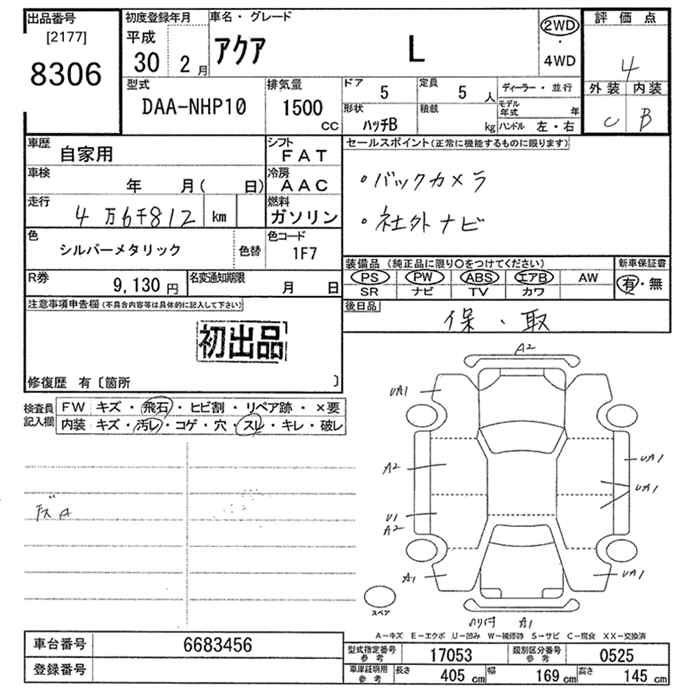 出品番号
[2177]
8306
初度登録年月
平成
30 2月
車名・グレード
アクア L
2WD
・
4WD
評価点
4
外装 内装
C B
型式
DAA-NHP10
排気量
1500 CC
ドア 5
定員 5 人
形状 ハッチB
積載 kg
ディーラー・並行
モデル年式 年
ハンドル 左・右
車歴
自家用
シフト
FAT
車検
年 月( 日)
冷房
AAC
走行
4万6千812 km
燃料
ガソリン
色
シルバーメタリック
色替
色コード
1F7
R券
9,130円
名変通知期限
月 日
セールスポイント(正常に機能するものに限ります)
・バックカメラ
・社外ナビ
装備品(純正品に限り○をつけてください)
新車保証書
PS PW ABS エアB AW
有・無
SR ナビ TV カワ
後日品
保・取
注意事項申告欄(不具合内容等は具体的に記入して下さい)
初出品
修復歴 有〔箇所 〕
検査員
記入欄
FW キズ・飛石・ヒビ割・リペア跡・×要
内装 キズ・汚レ・コゲ・穴・スレ・キレ・破レ
A2
UA1
A2
UA1
UA1
U1
A2
A1
UA1
A1
スペア
A−キズ E−エクボ U−凹み W−補修跡 S−サビ C−腐食 XX−交換済
車台番号
6683456
登録番号
型式指定番号
参考
17053
類別区分番号
参考
0525
車庫証明用
参考
長さ 405 cm
幅 169 cm
高さ 145 cm